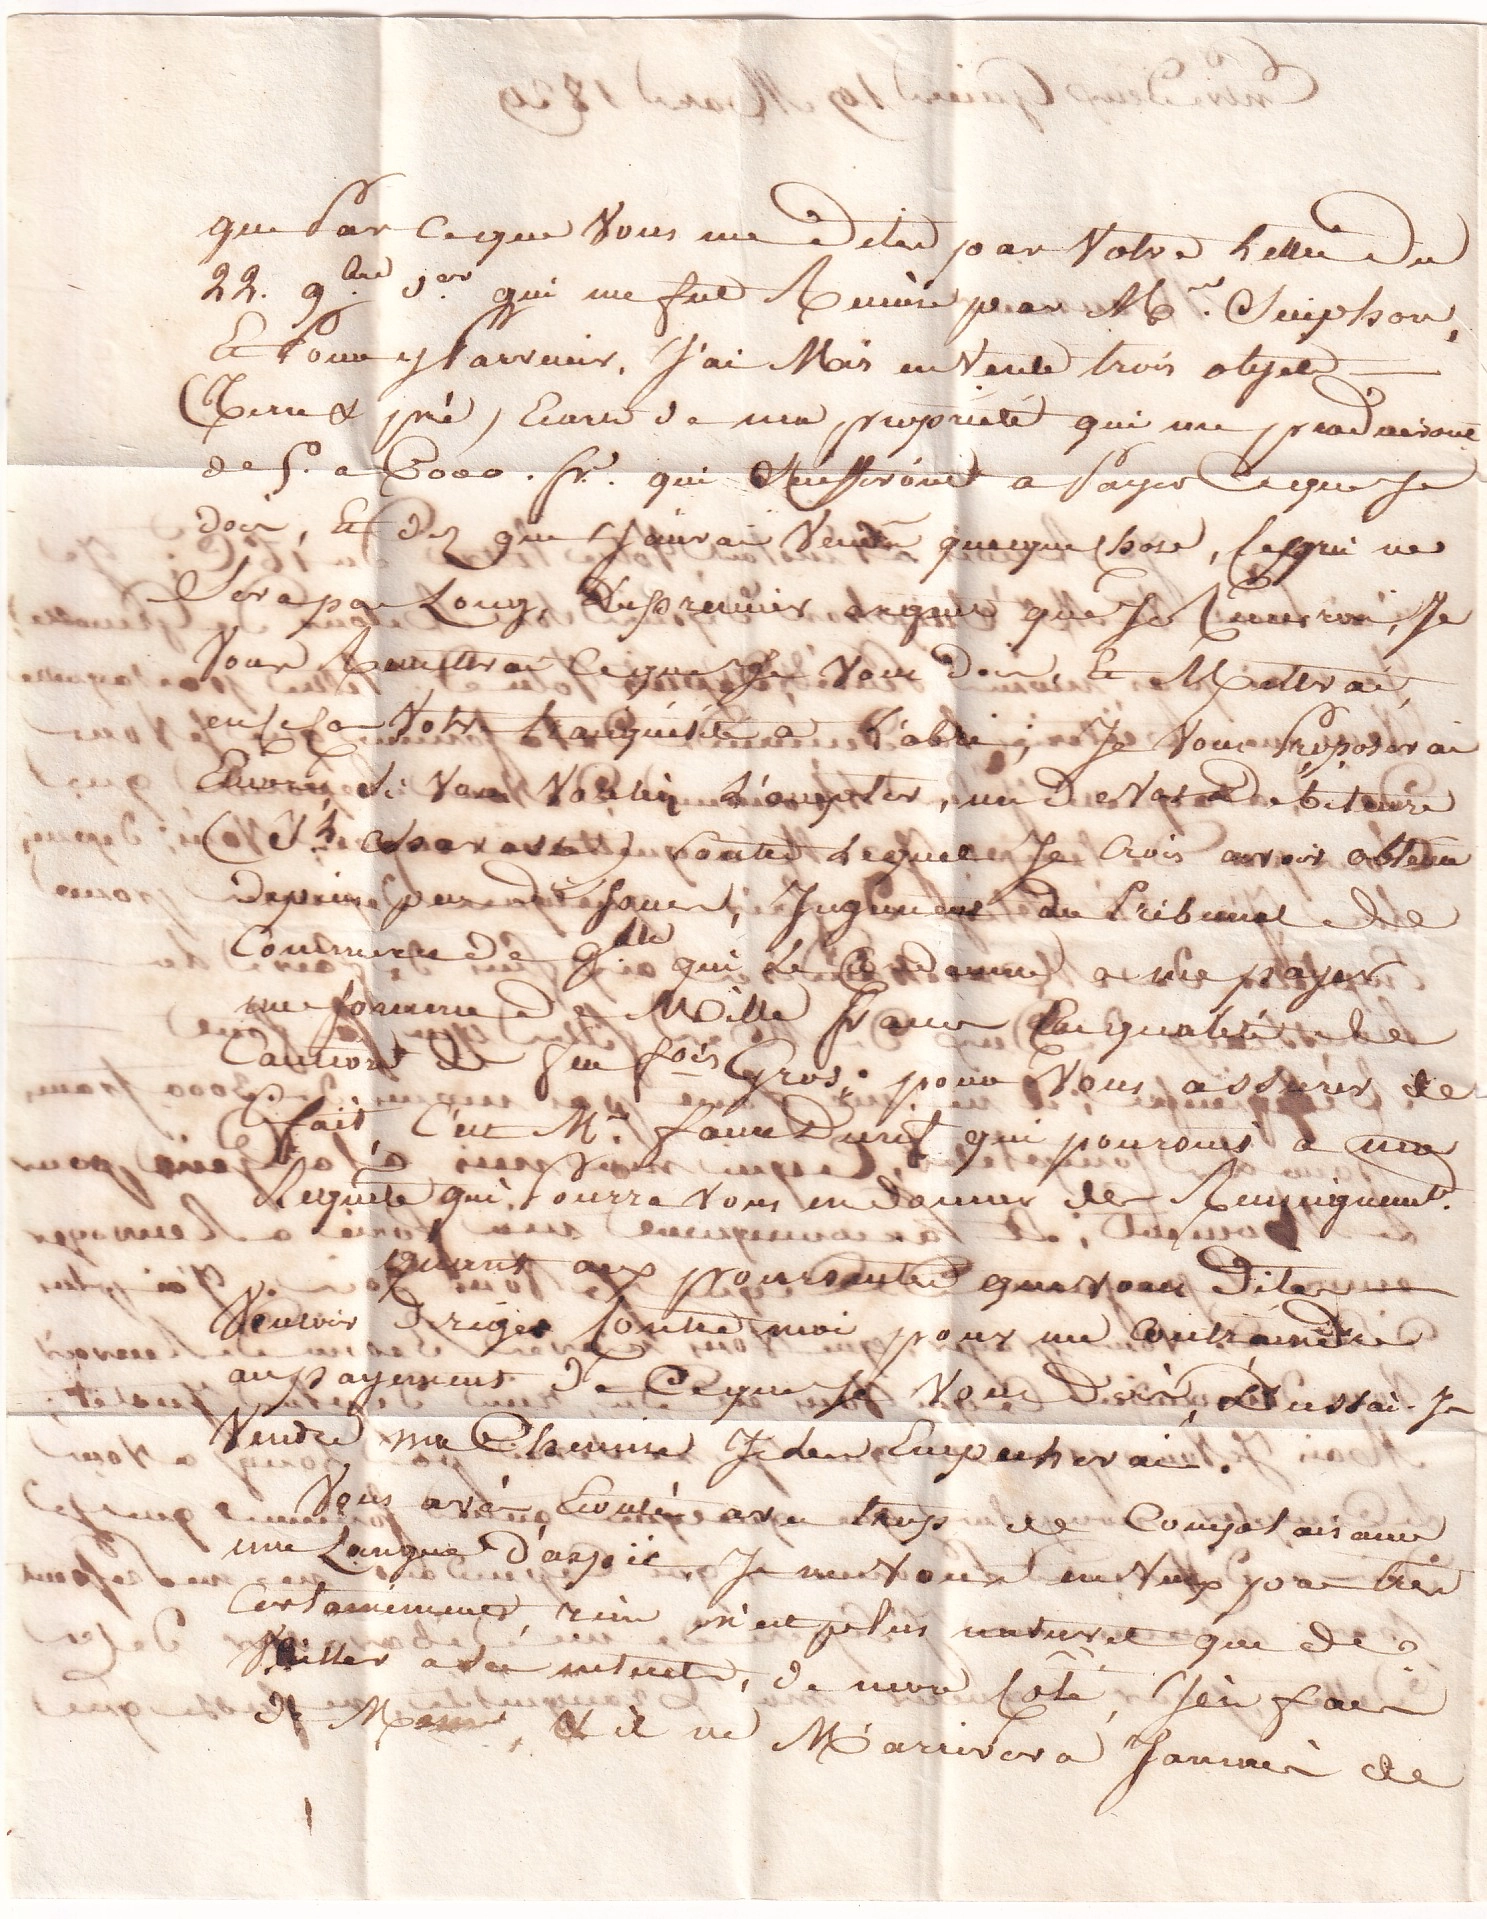 que par ce que vous me dites par votre Lettre du
22. 9bre der qui me fut Remise par Mr.
Et pour y parvenir, j'ai Mis en vente trois objets —
(Terre & pré) Epars de ma propriété qui me produiront
de 5. a 6000. fr. qui suffiront a payer ce que Je
dois, Et dez que J'aurai vendu quelque chose, ce qui ne
sera pas Long, des premiers argent que Je Recevrai, Je
vous Remettrai ce que Je vous dois, & Mettrai,
en ce cas votre tranquilité a L'abri; Je vous proposerai
Encore si vous vouliez L'accepter, un de vos débiteurs
contre Lequel Je crois avoir obtenu
depuis peu de Jours, Jugement du Tribunal de
Commerce de Gble qui Le Condamne a me payer
une somme de Mille francs En qualité de
Caution de feu fois Gros; pour vous assurer de
ce fait, c'est Mr. faure Durif qui poursuit a ma
Requête qui pourra vous en donner des Renseignemts.
Quant aux poursuites que vous dites —
vouloir diriger Contre moi pour me contraindre
au payement de ce que Je vous dois, Dussai-Je
vendre ma Chemise Je les Empecherai.
Vous avés Ecouté avec trop de Complaisance
une Langue d'aspic Je ne vous en veux pas très
Certainement, rien n'est plus naturel que de
veiller a ses interets, de mon Côté, J'en fais
de Même, & il ne M'arrivera Jamais de